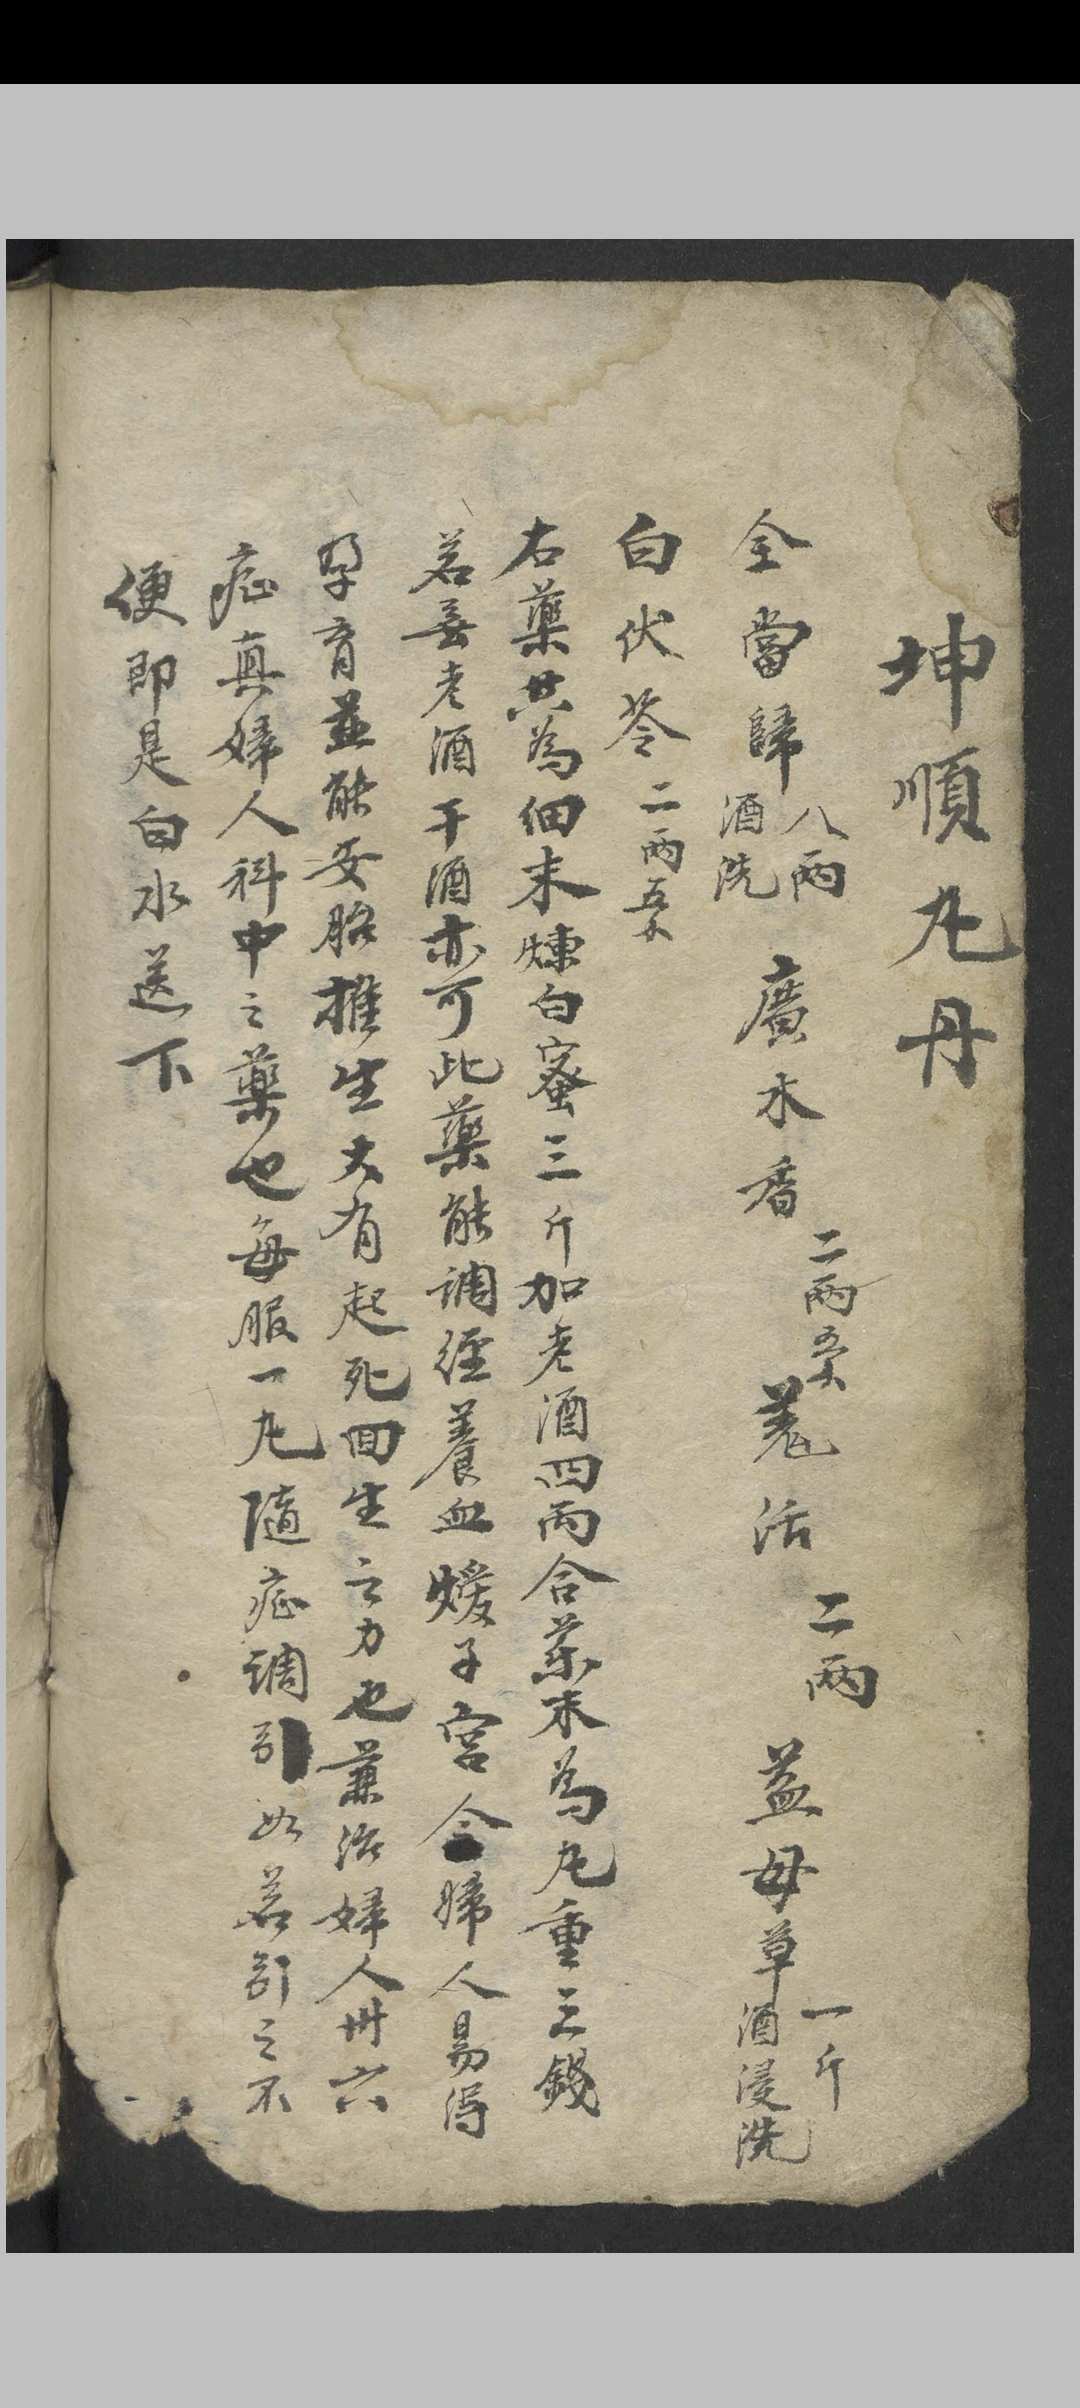 坤順丸丹
全當歸 八兩 酒洗 廣木香 二兩五錢 羌活 二兩 益母草 一斤 酒浸洗
白伏苓 二兩五錢
右藥共為細末煉白蜜三斤加老酒四兩合藥末為丸重三錢
若無老酒干酒亦可此藥能調經養血煖子宮令婦人易得
孕育並能安胎推生大有起死回生之力也兼治婦人卅六
症真婦人科中之藥也每服一丸隨症調引如若引之不
便即是白水送下